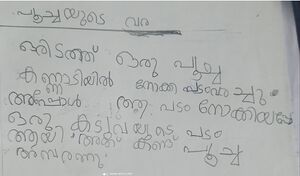 പൂച്ചയുടെ വര
ഒരിടത്ത് ഒരു പൂച്ച
കണ്ണാടിയിൽ നോക്കി പടംവരച്ചു
അപ്പോൾ ആ പടം നോക്കിയപ്പോ
ഒരു കടുവയുടെ പടം
ആയി അത് കണ്ട് പൂച്ച
അമ്പരന്നു